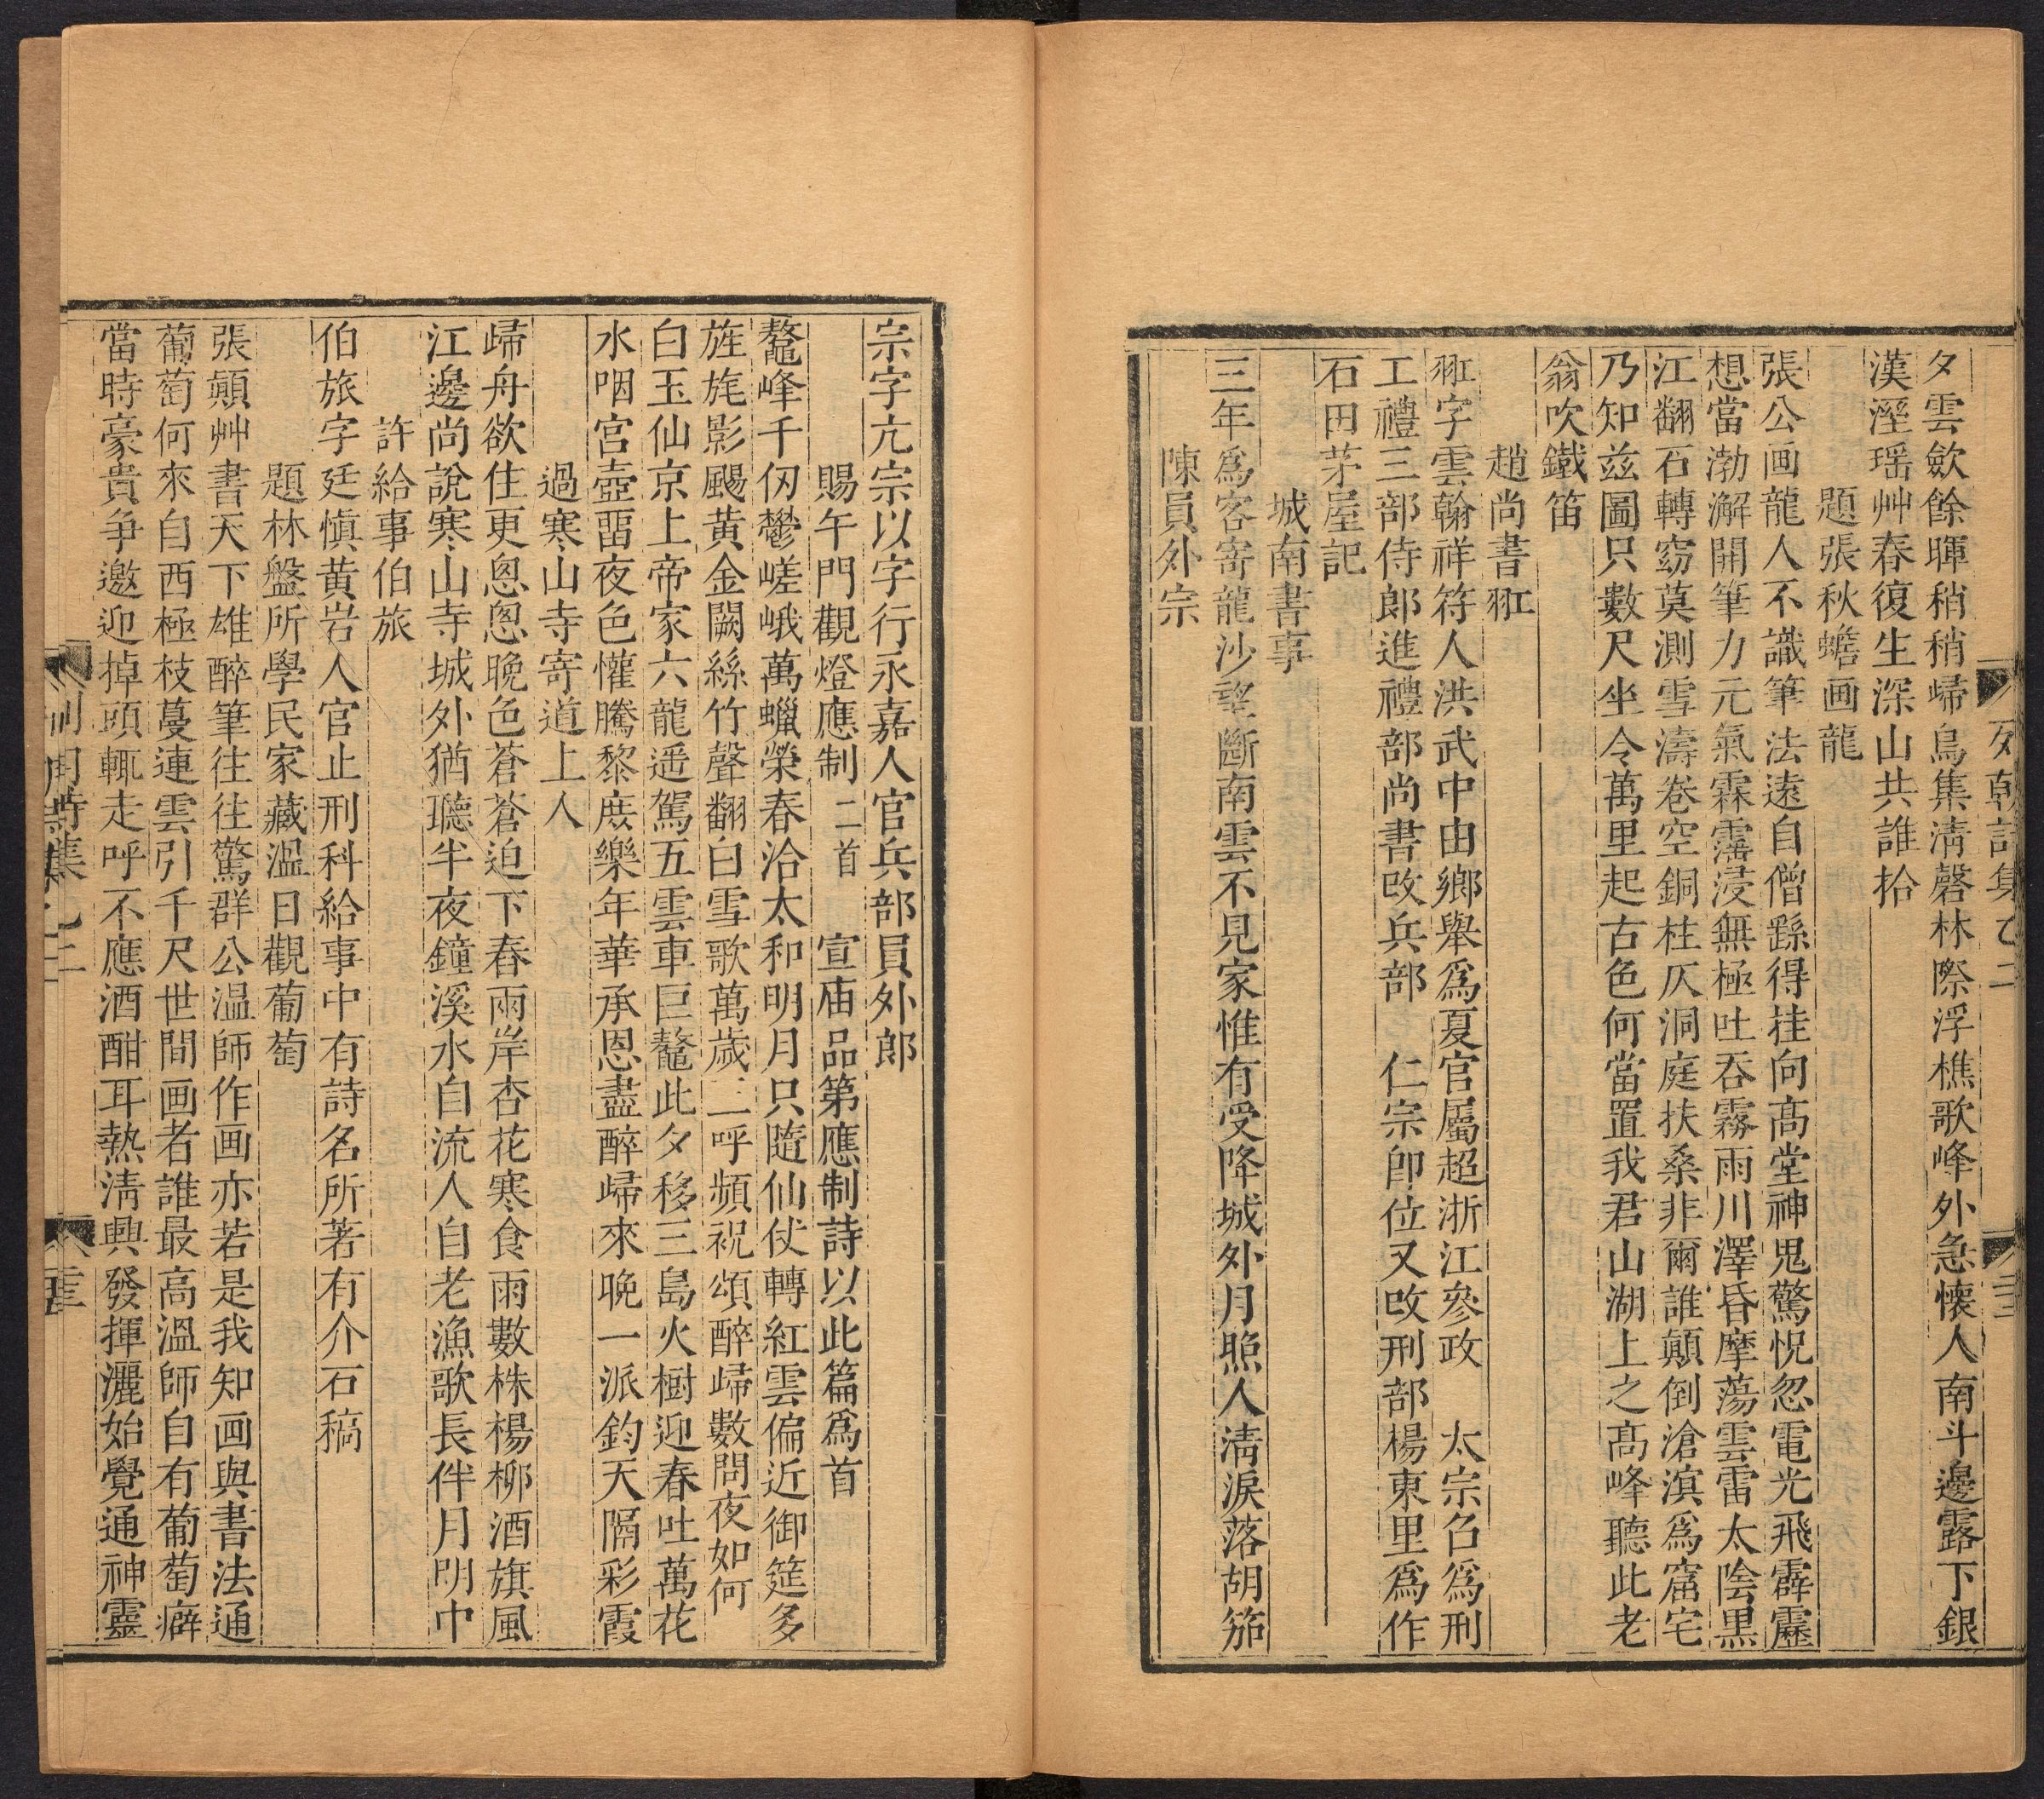 列朝詩集乙二
夕雲歛餘暉稍稍歸鳥集淸磬林際浮樵歌峰外急懷人南斗邊露下銀
漢溼瑶艸春復生深山共誰拾
題張秋蟾画龍
張公画龍人不識筆法遠自僧繇得挂向髙堂神鬼驚怳忽電光飛霹靂
想當渤澥開筆力元氣霖霪浸無極吐吞霧雨川澤昏摩蕩雲雷太陰黒
江翻石轉窈莫測雪濤卷空銅柱仄洞庭扶桑非爾誰顛倒滄溟爲窟宅
乃知兹圖只數尺坐令萬里起古色何當置我君山湖上之髙峰聽此老
翁吹鐵笛
趙尚書羾
羾字雲翰祥符人洪武中由鄉舉爲夏官屬超浙江叅政 太宗召爲刑
工禮三部侍郎進禮部尚書改兵部 仁宗卽位又改刑部楊東里爲作
石田茅屋記
城南書事
三年爲客寄龍沙望斷南雲不見家惟有受降城外月照人淸淚落胡笳
陳員外宗
宗字亢宗以字行永嘉人官兵部員外郎
賜午門觀燈應制二首 宣庙品第應制詩以此篇爲首
鼇峰千仞鬱嵯峨萬蠟榮春洽太和明月只隨仙仗轉紅雲偏近御筵多
旌旄影颺黄金闕絲竹聲翻白雪歌萬歲三呼頻祝頌醉歸數問夜如何
白玉仙京上帝家六龍遥駕五雲車巨鼇此夕移三島火樹迎春吐萬花
水咽宮壺畱夜色懽騰黎庻樂年華承恩盡醉歸來晩一派鈞天隔彩霞
過寒山寺寄道上人
歸舟欲住更悤悤晩色蒼蒼迫下舂雨岸杏花寒食雨數株楊栁酒旗風
江邊尚說寒山寺城外猶聽半夜鐘溪水自流人自老漁歌長伴月明中
許給事伯旅
伯旅字廷愼黄岩人官止刑科給事中有詩名所著有介石稿
題林盤所學民家藏溫日觀葡萄
張顛艸書天下雄醉筆往往驚群公温師作画亦若是我知画與書法通
葡萄何來自西極枝蔓連雲引千尺世間画者誰最高溫師自有葡萄癖
當時豪貴争邀迎掉頭輒走呼不應酒酣耳熱淸興發揮灑始覺通神靈